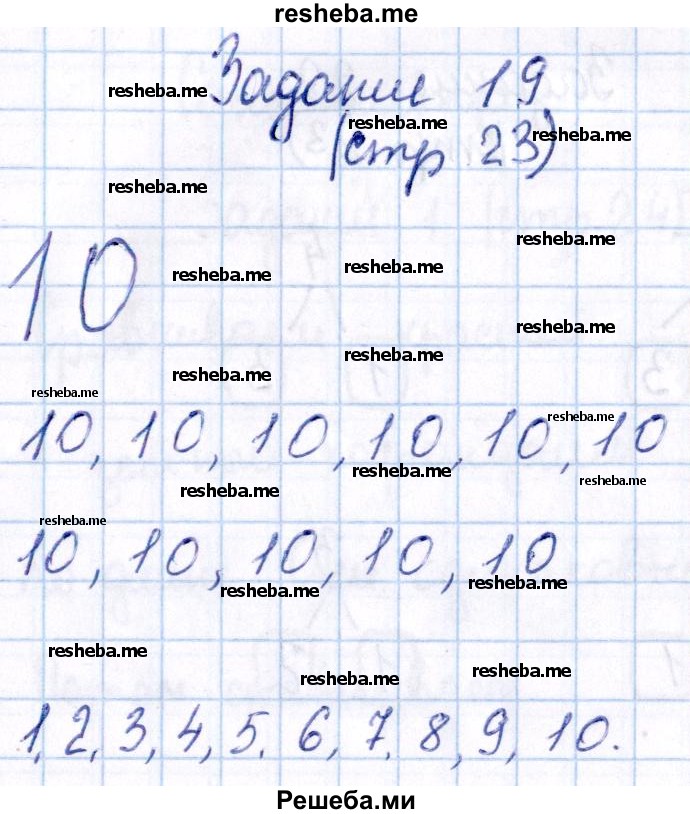 resheba.me
Задание 19
resheba.me
resheba.me resheba.me
(стр 23)
resheba.me
resheba.me
10
resheba.me resheba.me
resheba.me
resheba.me
resheba.me
resheba.me
resheba.me
10, 10, 10, 10, 10, 10
resheba.me
resheba.me resheba.me
resheba.me
10, 10, 10, 10, 10
resheba.me resheba.me
resheba.me
resheba.me resheba.me
1, 2, 3, 4, 5, 6, 7, 8, 9, 10.
Решеба.ми